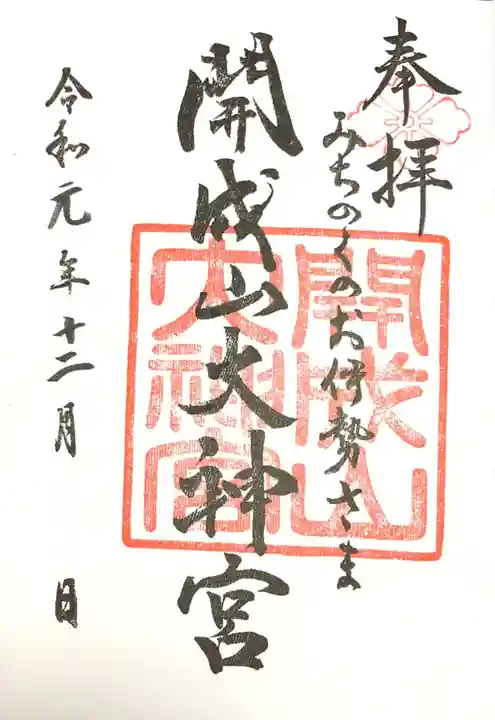 奉拝
みちのくのお伊勢さま
開成山大神宮
開成山
大神宮
令和元年十二月 日